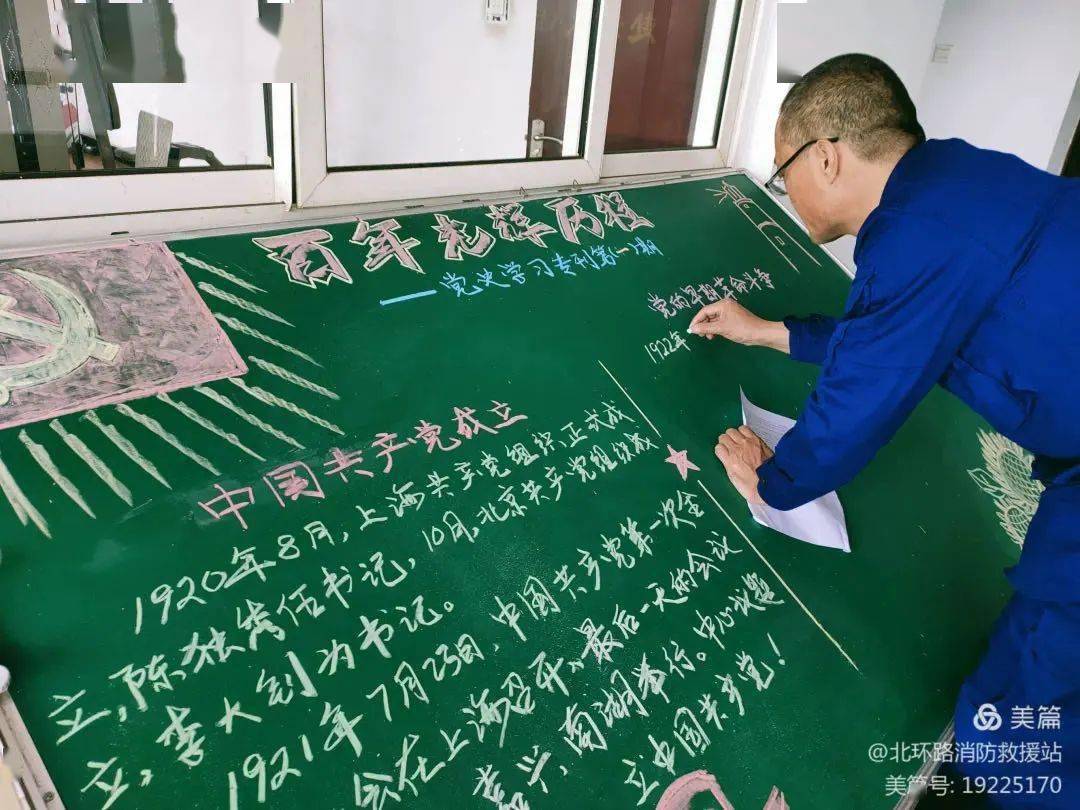 百年光辉历程
——党史学习专刊第(一)期
中国共产党成立
1920年8月,上海共产党组织正式成
立,陈独秀任书记,10月,北京共产党组织成
立,李大钊为书记。
1921年7月23日,中国共产党第一次全
会在上海召开,最后一天的会议
嘉兴,南湖举行。中心议题
立中国共产党!
党的早期革命斗争
1922年
美篇
@北环路消防救援站
美篇号: 19225170